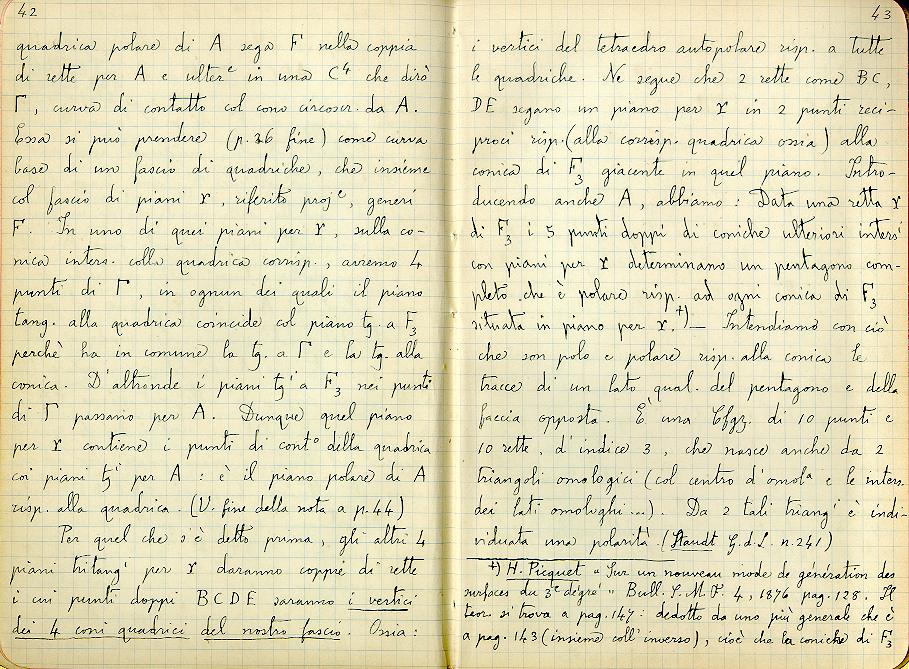 42
quadrica polare di A sega F nella coppia
di rette per A e ulterᵉ in una C⁴ che dirò
Γ, curva di contatto col cono circoscr. da A.
Essa si può prendere (p. 36 fine) come curva
base di un fascio di quadriche, che insieme
col fascio di piani r, riferito projᵉ, generi
F. In uno di quei piani per r, sulla co-
nica inters. colla quadrica corrisp., avremo 4
punti di Γ, in ognun dei quali il piano
tang. alla quadrica coincide col piano tg. a F₃
perchè ha in comune la tg. a Γ e la tg. alla
conica. D'altronde i piani tgⁱ a F₃ nei punti
di Γ passano per A. Dunque quel piano
per r contiene i punti di contᵒ della quadrica
coi piani tgⁱ per A : è il piano polare di A
risp. alla quadrica. (V. fine della nota a p. 44)
Per quel che s'è detto prima, gli altri 4
piani tritangⁱ per r daranno coppie di rette
i cui punti doppi B C D E saranno i vertici
dei 4 coni quadrici del nostro fascio. Ossia:
43
i vertici del tetraedro autopolare risp. a tutte
le quadriche. Ne segue che 2 rette come BC,
DE segano un piano per r in 2 punti reci-
proci risp. (alla corrisp. quadrica ossia) alla
conica di F₃ giacente in quel piano. Intro-
ducendo anche A, abbiamo : Data una retta r
di F₃ i 5 punti doppi di coniche ulteriori intersⁱ
con piani per r determinano un pentagono com-
pleto che è polare risp. ad ogni conica di F₃
situata in piano per r.⁺) — Intendiamo con ciò
che son polo e polare risp. alla conica le
tracce di un lato qual. del pentagono e della
faccia opposta. È una Cfgz. di 10 punti e
10 rette, d'indice 3, che nasce anche da 2
triangoli omologici (col centro d'omolᵃ e le inters.
dei lati omologhi ...). Da 2 tali triangⁱ è indi-
viduata una polarità (Staudt G. d. L. n. 241)
+) H. Picquet « Sur un nouveau mode de génération des
surfaces du 3ᵉ degré » Bull. S. M. F. 4, 1876 pag. 128. Il
teor. si trova a pag. 147 : dedotto da uno più generale che è
a pag. 143 (insieme coll'inverso), cioè che le coniche di F₃